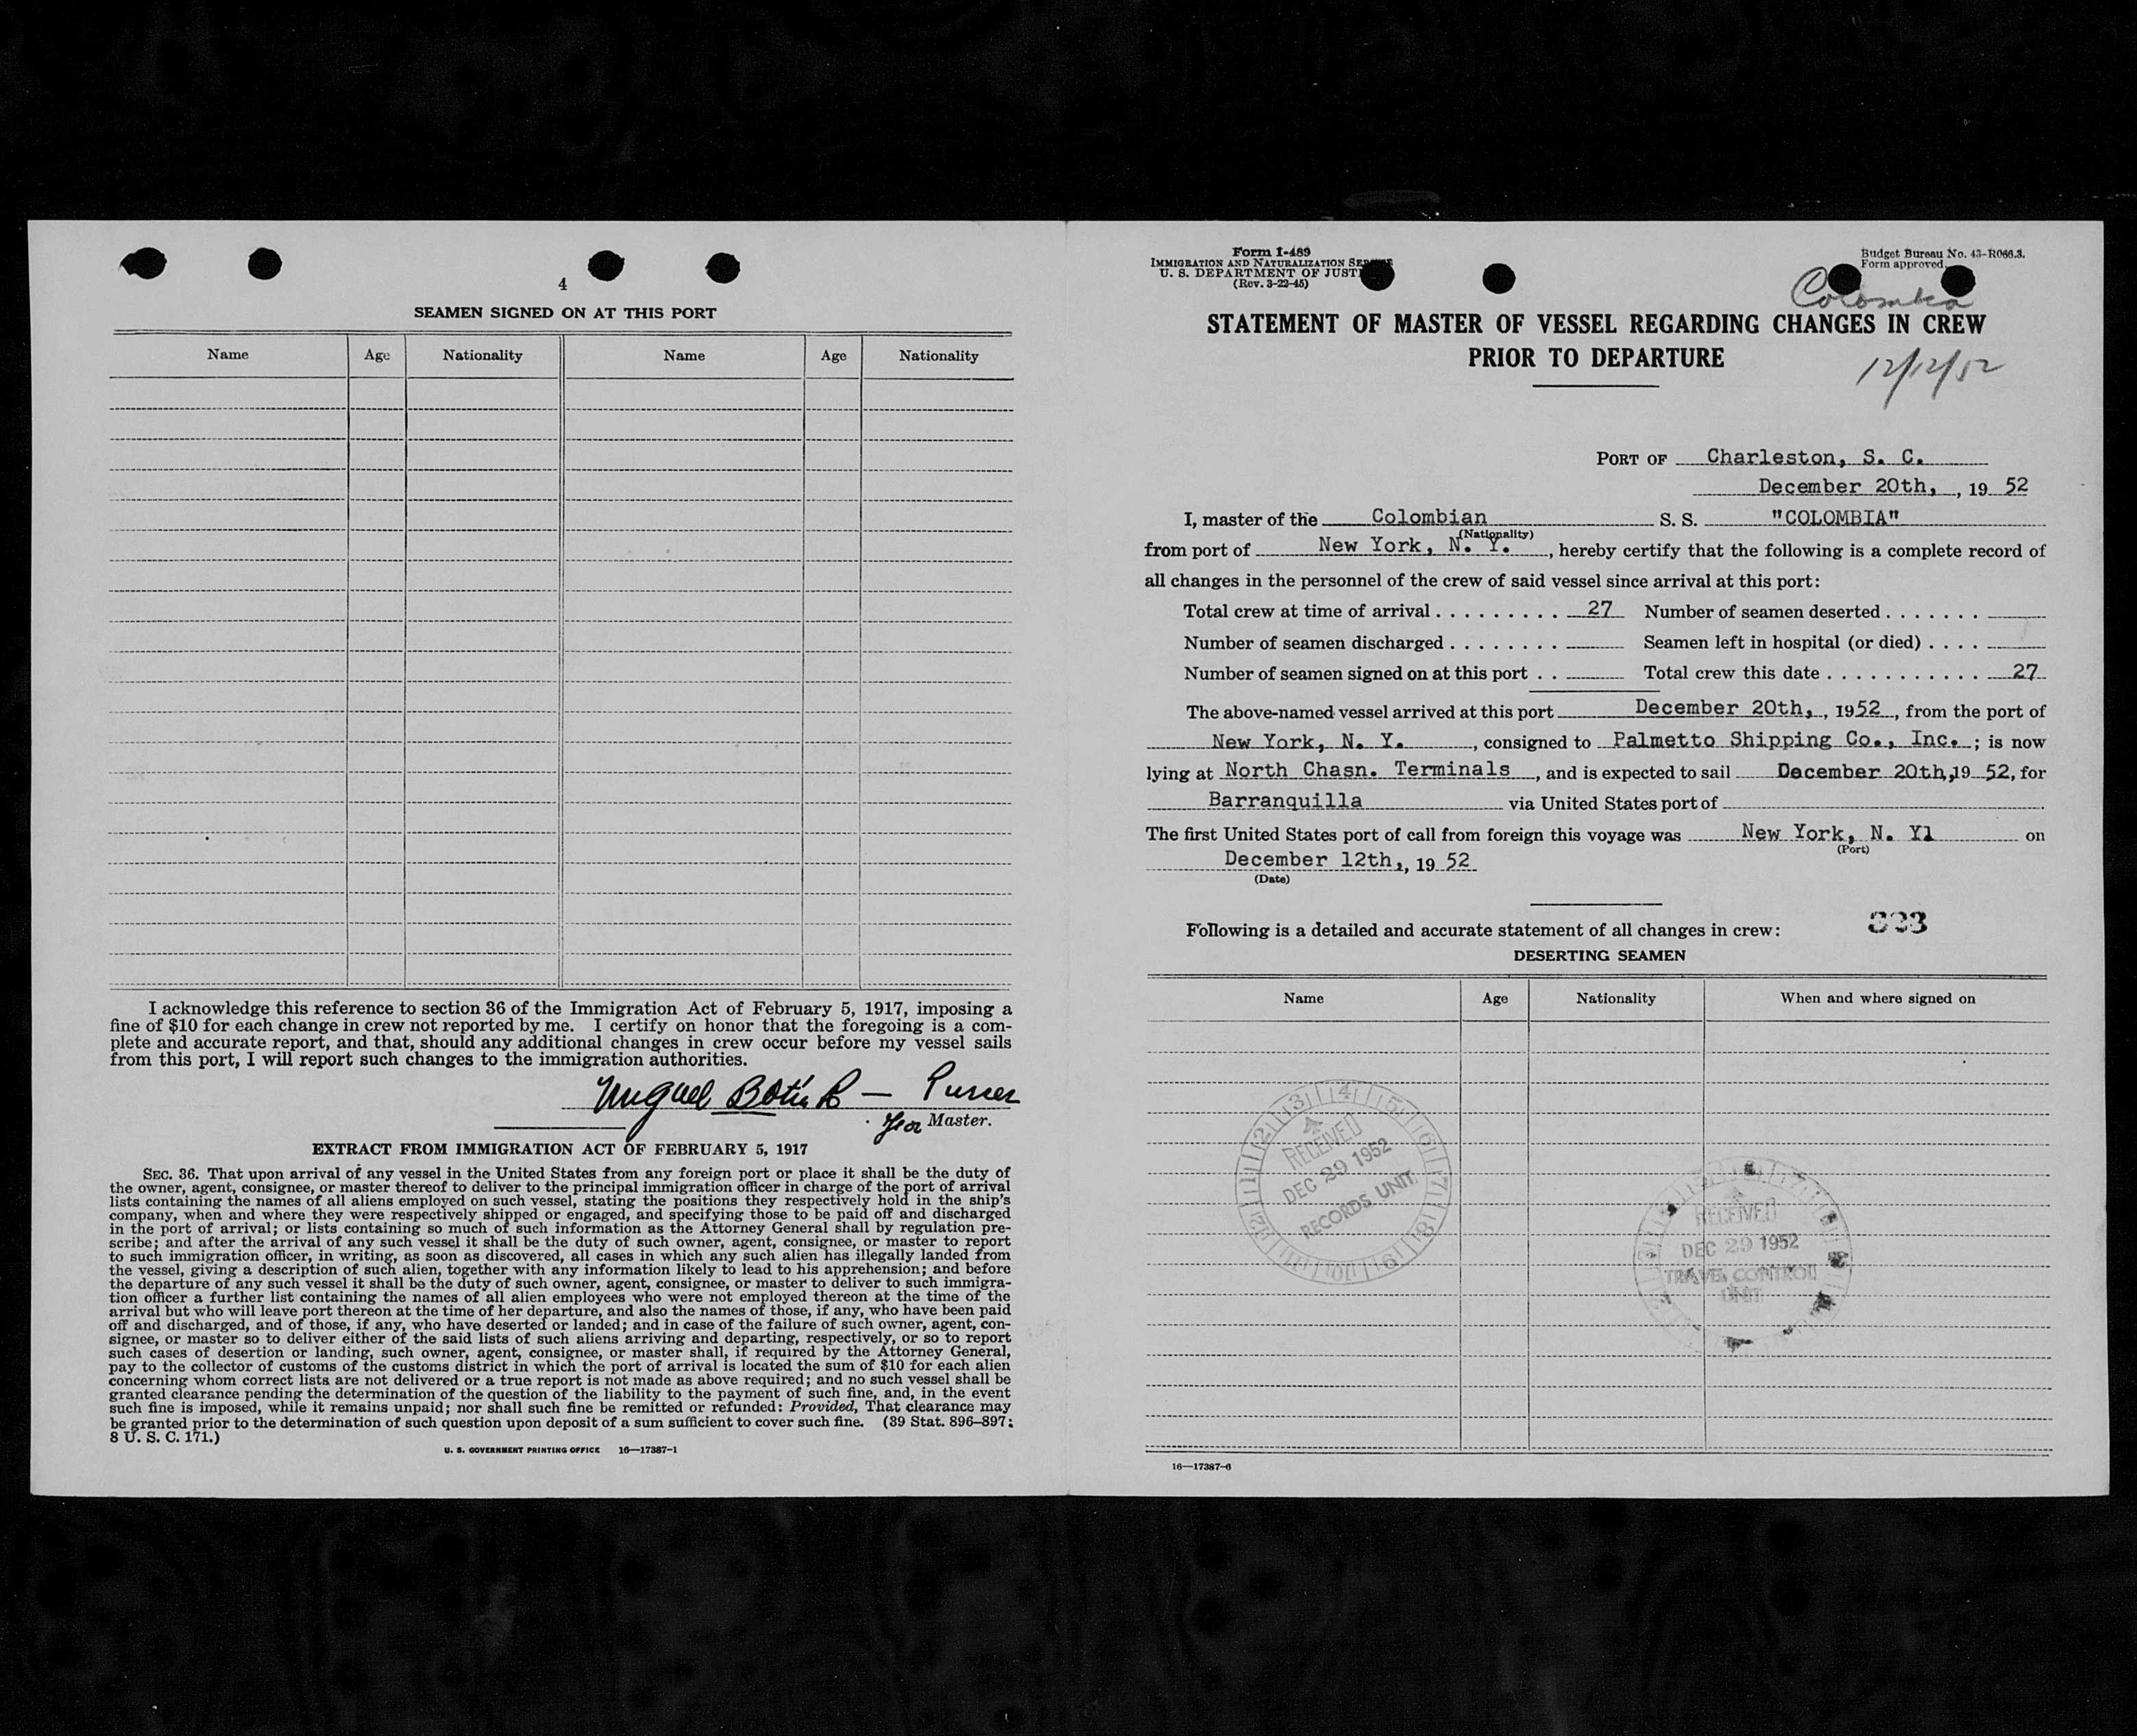 4
SEAMEN SIGNED ON AT THIS PORT
Name Age Nationality Name Age Nationality
I acknowledge this reference to section 36 of the Immigration Act of February 5, 1917, imposing a
fine of $10 for each change in crew not reported by me. I certify on honor that the foregoing is a com-
plete and accurate report, and that, should any additional changes in crew occur before my vessel sails
from this port, I will report such changes to the immigration authorities.
Miguel — Purser
For Master.
EXTRACT FROM IMMIGRATION ACT OF FEBRUARY 5, 1917
SEC. 36. That upon arrival of any vessel in the United States from any foreign port or place it shall be the duty of
the owner, agent, consignee, or master thereof to deliver to the principal immigration officer in charge of the port of arrival
lists containing the names of all aliens employed on such vessel, stating the positions they respectively hold in the ship's
company, when and where they were respectively shipped or engaged, and specifying those to be paid off and discharged
in the port of arrival; or lists containing so much of such information as the Attorney General shall by regulation pre-
scribe; and after the arrival of any such vessel it shall be the duty of such owner, agent, consignee, or master to report
to such immigration officer, in writing, as soon as discovered, all cases in which any such alien has illegally landed from
the vessel, giving a description of such alien, together with any information likely to lead to his apprehension; and before
the departure of any such vessel it shall be the duty of such owner, agent, consignee, or master to deliver to such immigra-
tion officer a further list containing the names of all alien employees who were not employed thereon at the time of the
arrival but who will leave port thereon at the time of her departure, and also the names of those, if any, who have been paid
off and discharged, and of those, if any, who have deserted or landed; and in case of the failure of such owner, agent, con-
signee, or master so to deliver either of the said lists of such aliens arriving and departing, respectively, or so to report
such cases of desertion or landing, such owner, agent, consignee, or master shall, if required by the Attorney General,
pay to the collector of customs of the customs district in which the port of arrival is located the sum of $10 for each alien
concerning whom correct lists are not delivered or a true report is not made as above required; and no such vessel shall be
granted clearance pending the determination of the question of the liability to the payment of such fine, and, in the event
such fine is imposed, while it remains unpaid; nor shall such fine be remitted or refunded: Provided, That clearance may
be granted prior to the determination of such question upon deposit of a sum sufficient to cover such fine. (39 Stat. 896–897;
8 U. S. C. 171.)
U. S. GOVERNMENT PRINTING OFFICE 16—17387-1
Form I-489
IMMIGRATION AND NATURALIZATION
U. S. DEPARTMENT OF
(Rev. 3-22-45)
Budget Bureau No. 43-R066.3.
Form approved.
Colombia
STATEMENT OF MASTER OF VESSEL REGARDING CHANGES IN CREW
PRIOR TO DEPARTURE
12/12/52
PORT OF Charleston, S. C.
December 20th, , 19 52
I, master of the Colombian S. S. "COLOMBIA"
(Nationality)
from port of New York, N. Y. , hereby certify that the following is a complete record of
all changes in the personnel of the crew of said vessel since arrival at this port:
Total crew at time of arrival . . . . . . . . . 27 Number of seamen deserted . . . . . . .
Number of seamen discharged . . . . . . . . Seamen left in hospital (or died) . . . .
Number of seamen signed on at this port . . Total crew this date . . . . . . . . . . . 27
The above-named vessel arrived at this port December 20th, , 1952 , from the port of
New York, N. Y. , consigned to Palmetto Shipping Co., Inc. ; is now
lying at North Chasn. Terminals , and is expected to sail December 20th,19 52, for
Barranquilla via United States port of .
The first United States port of call from foreign this voyage was New York, N. Y1 on
(Port)
December 12th, , 19 52
(Date)
Following is a detailed and accurate statement of all changes in crew:
DESERTING SEAMEN
Name Age Nationality When and where signed on
RECEIVED
DEC 29 1952
RECORDS UNIT
RECEIVED
DEC 29 1952
TRAVEL CONTROL
UNIT
16—17387-6